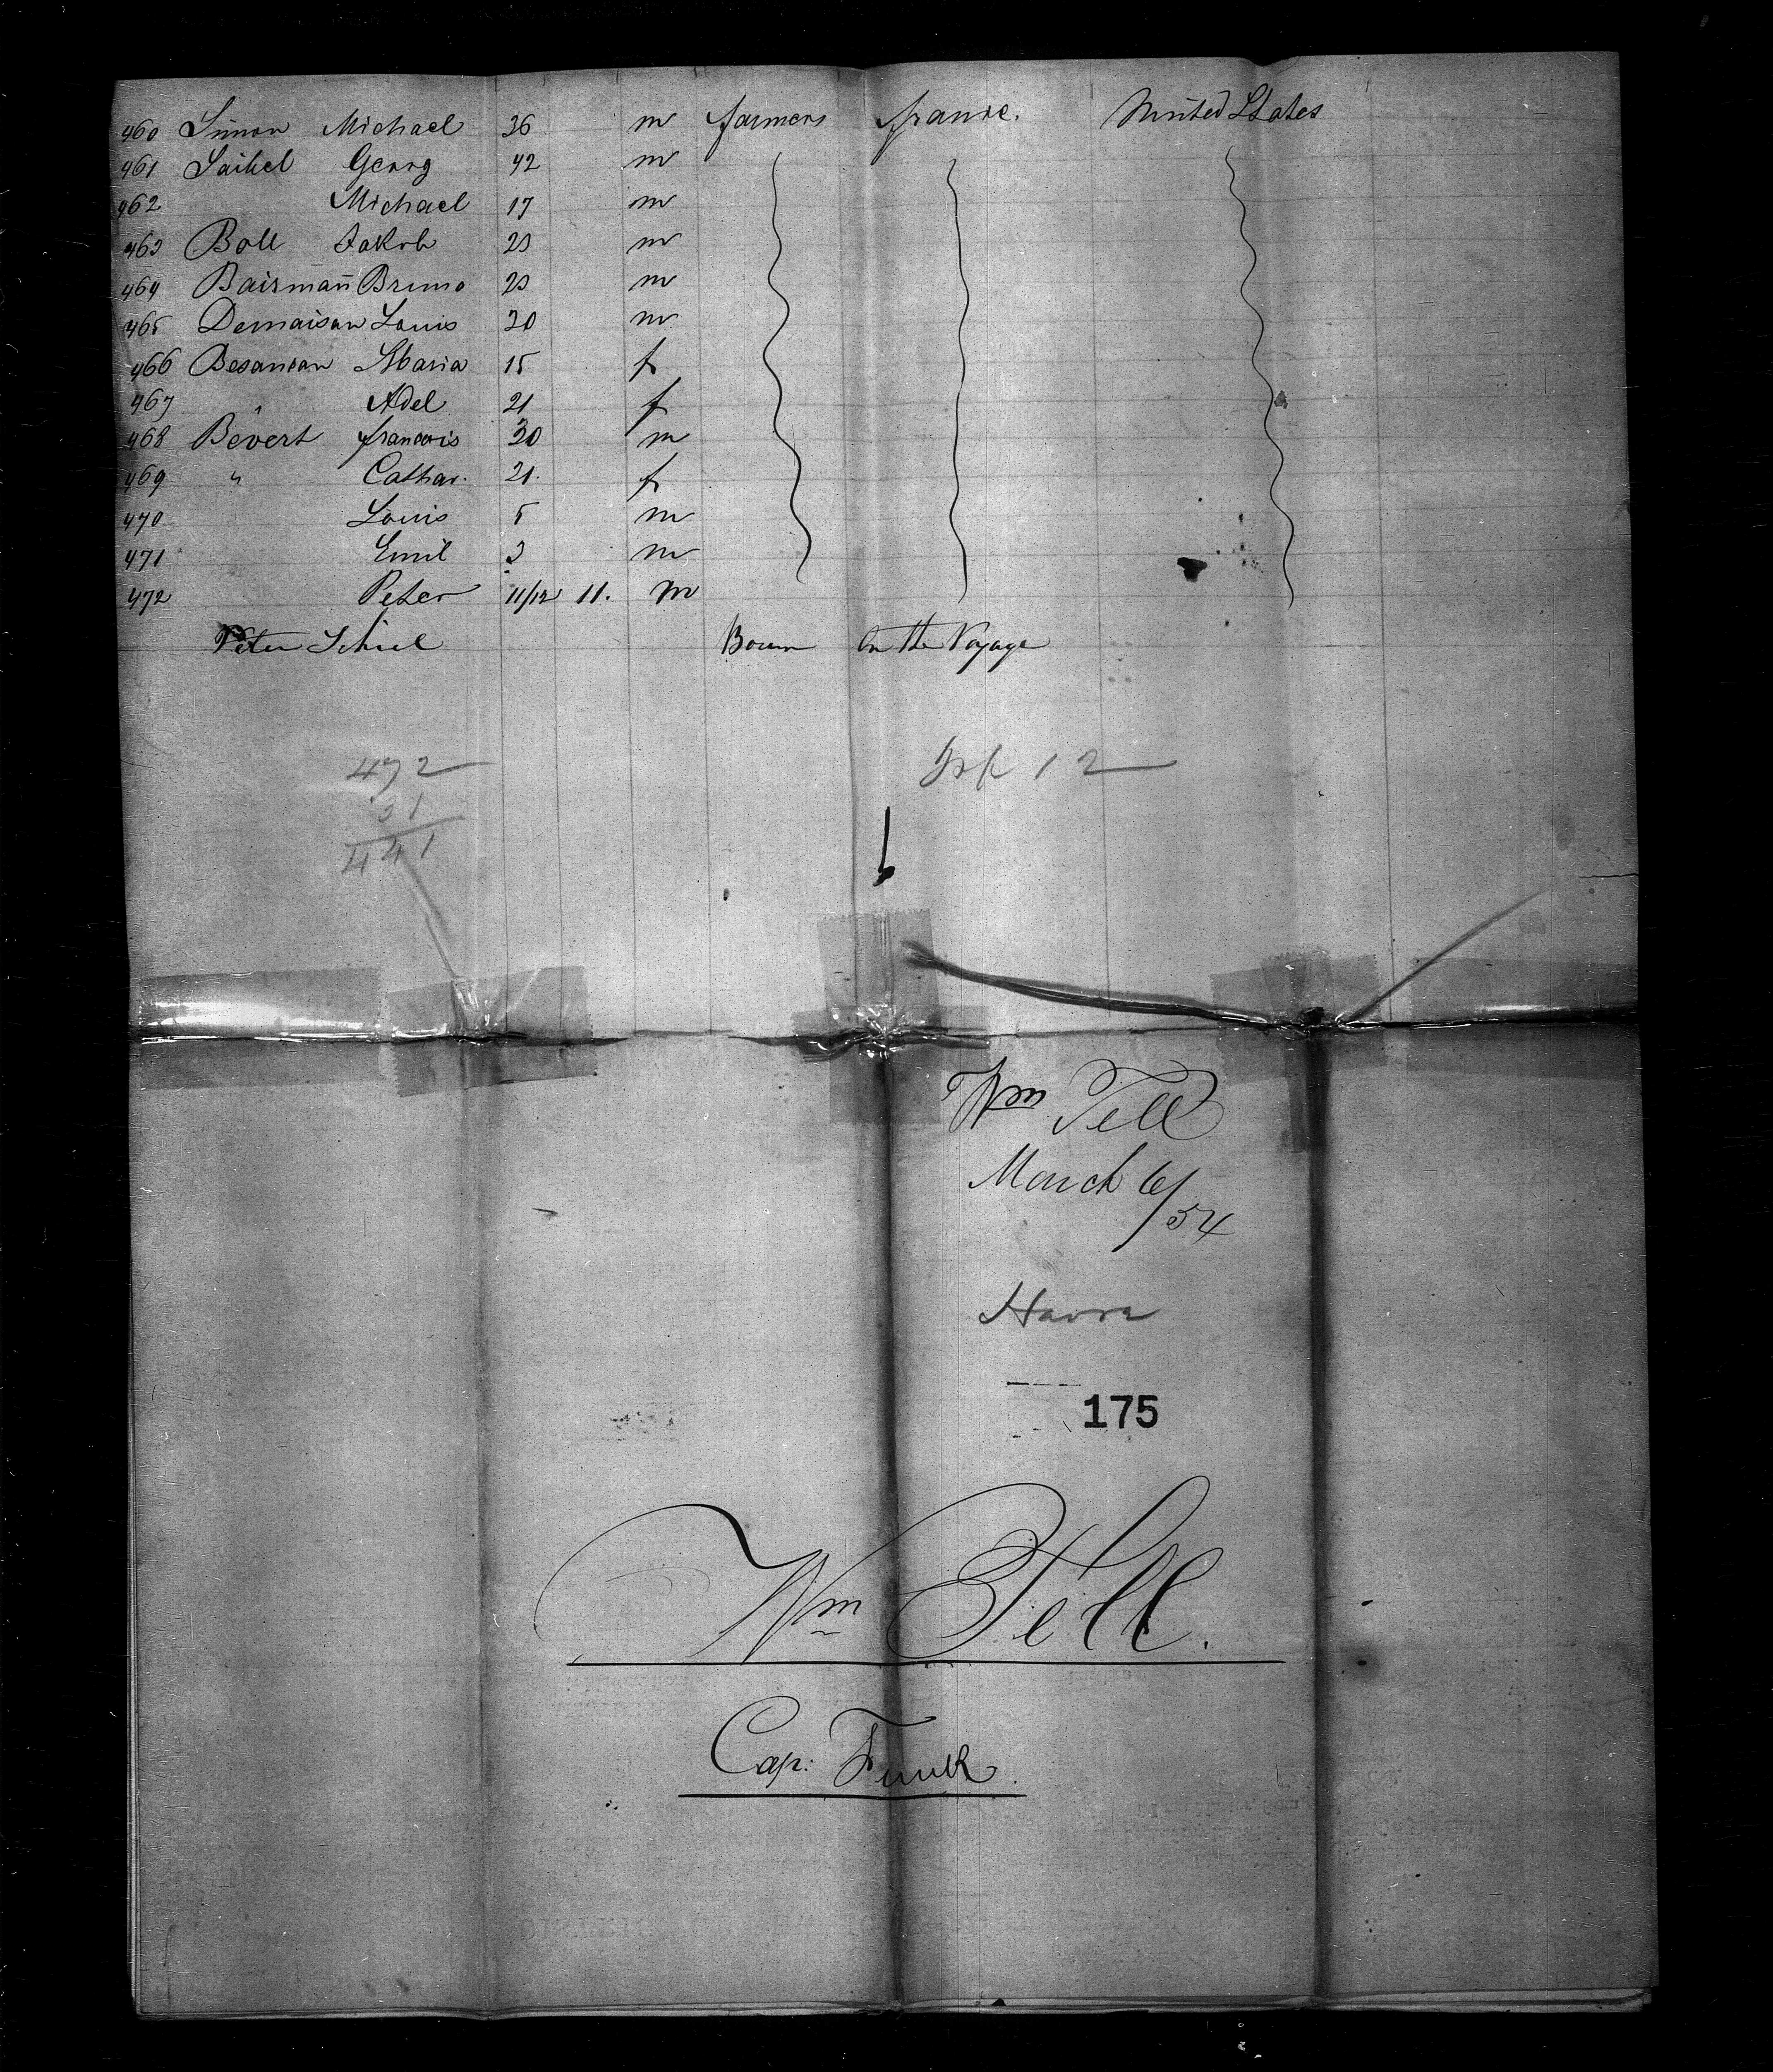 460 Simon Michael 36 m farmers france. United States
461 Saibel Georg 42 m
462 Michael 17 m
463 Boll Jakob 23 m
464 Bairmañ Bruno 23 m
465 Demaison Louis 30 m
466 Besancan Maria 15 f
467 " Adel 21 f
468 Bevert francois 30 m
469 " Cathar. 21. f
470 Louis 5 m
471 Emil 3 m
472 Peter 11/12 11. m
Peter Schiel Born On the Voyage
472
31
441
12
Wm Tell
March 6/54
Havre
175
Wm Tell.
Cap: Funk.